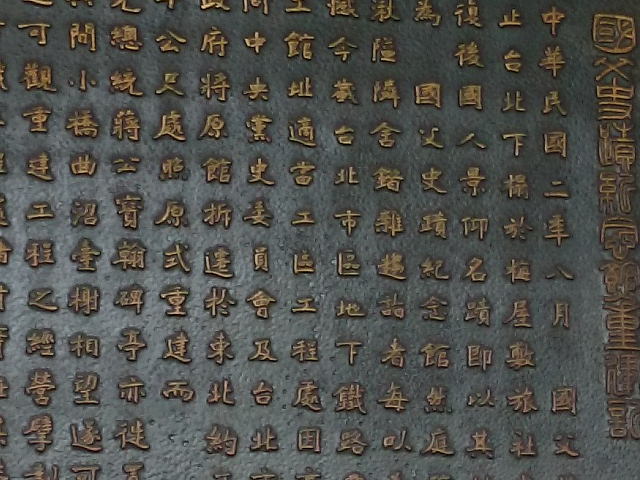 國父史蹟紀念館重建記
中華民國二年八月 國父
止台北下榻於梅屋敷旅社
復後國人景仰名蹟即以其
為 國父史蹟紀念館然庭
湫隘隣舍錯雜趨詣者每以
感今歲台北市區地下鐵路
館址適當工區工程處因
中央黨史委員會及台北
政府將原館拆遷於東北約
公尺處照原式重建而
總統蔣公寶翰碑亭亦徙
間小橋曲沼臺榭相望遂可
可觀重建工程之經營擘劃